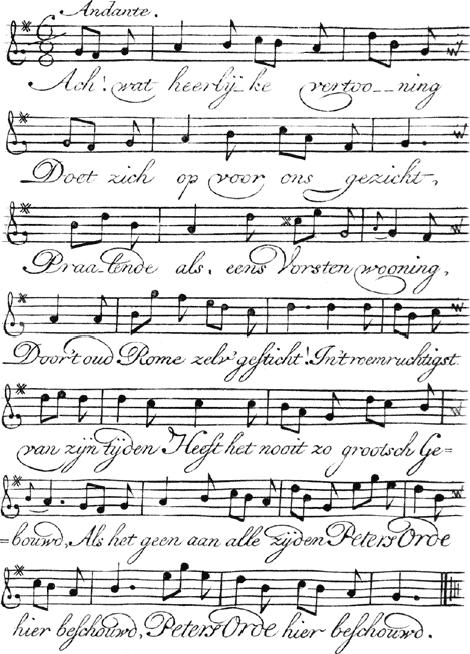 Andante.
Ach! wat heerlij_ke vertoo__ning
Doet zich op voor ons gezicht,
Praalende als, eens Vorsten wooning,
Door't oud Rome zelv' gesticht! In't roemruchtigst
van zijn tijden Heeft het nooit zo grootsch Ge=
=bouwd, Als het geen aan alle zijden Peters Orde
hier beschouwd, Peters Orde hier beschouwd.